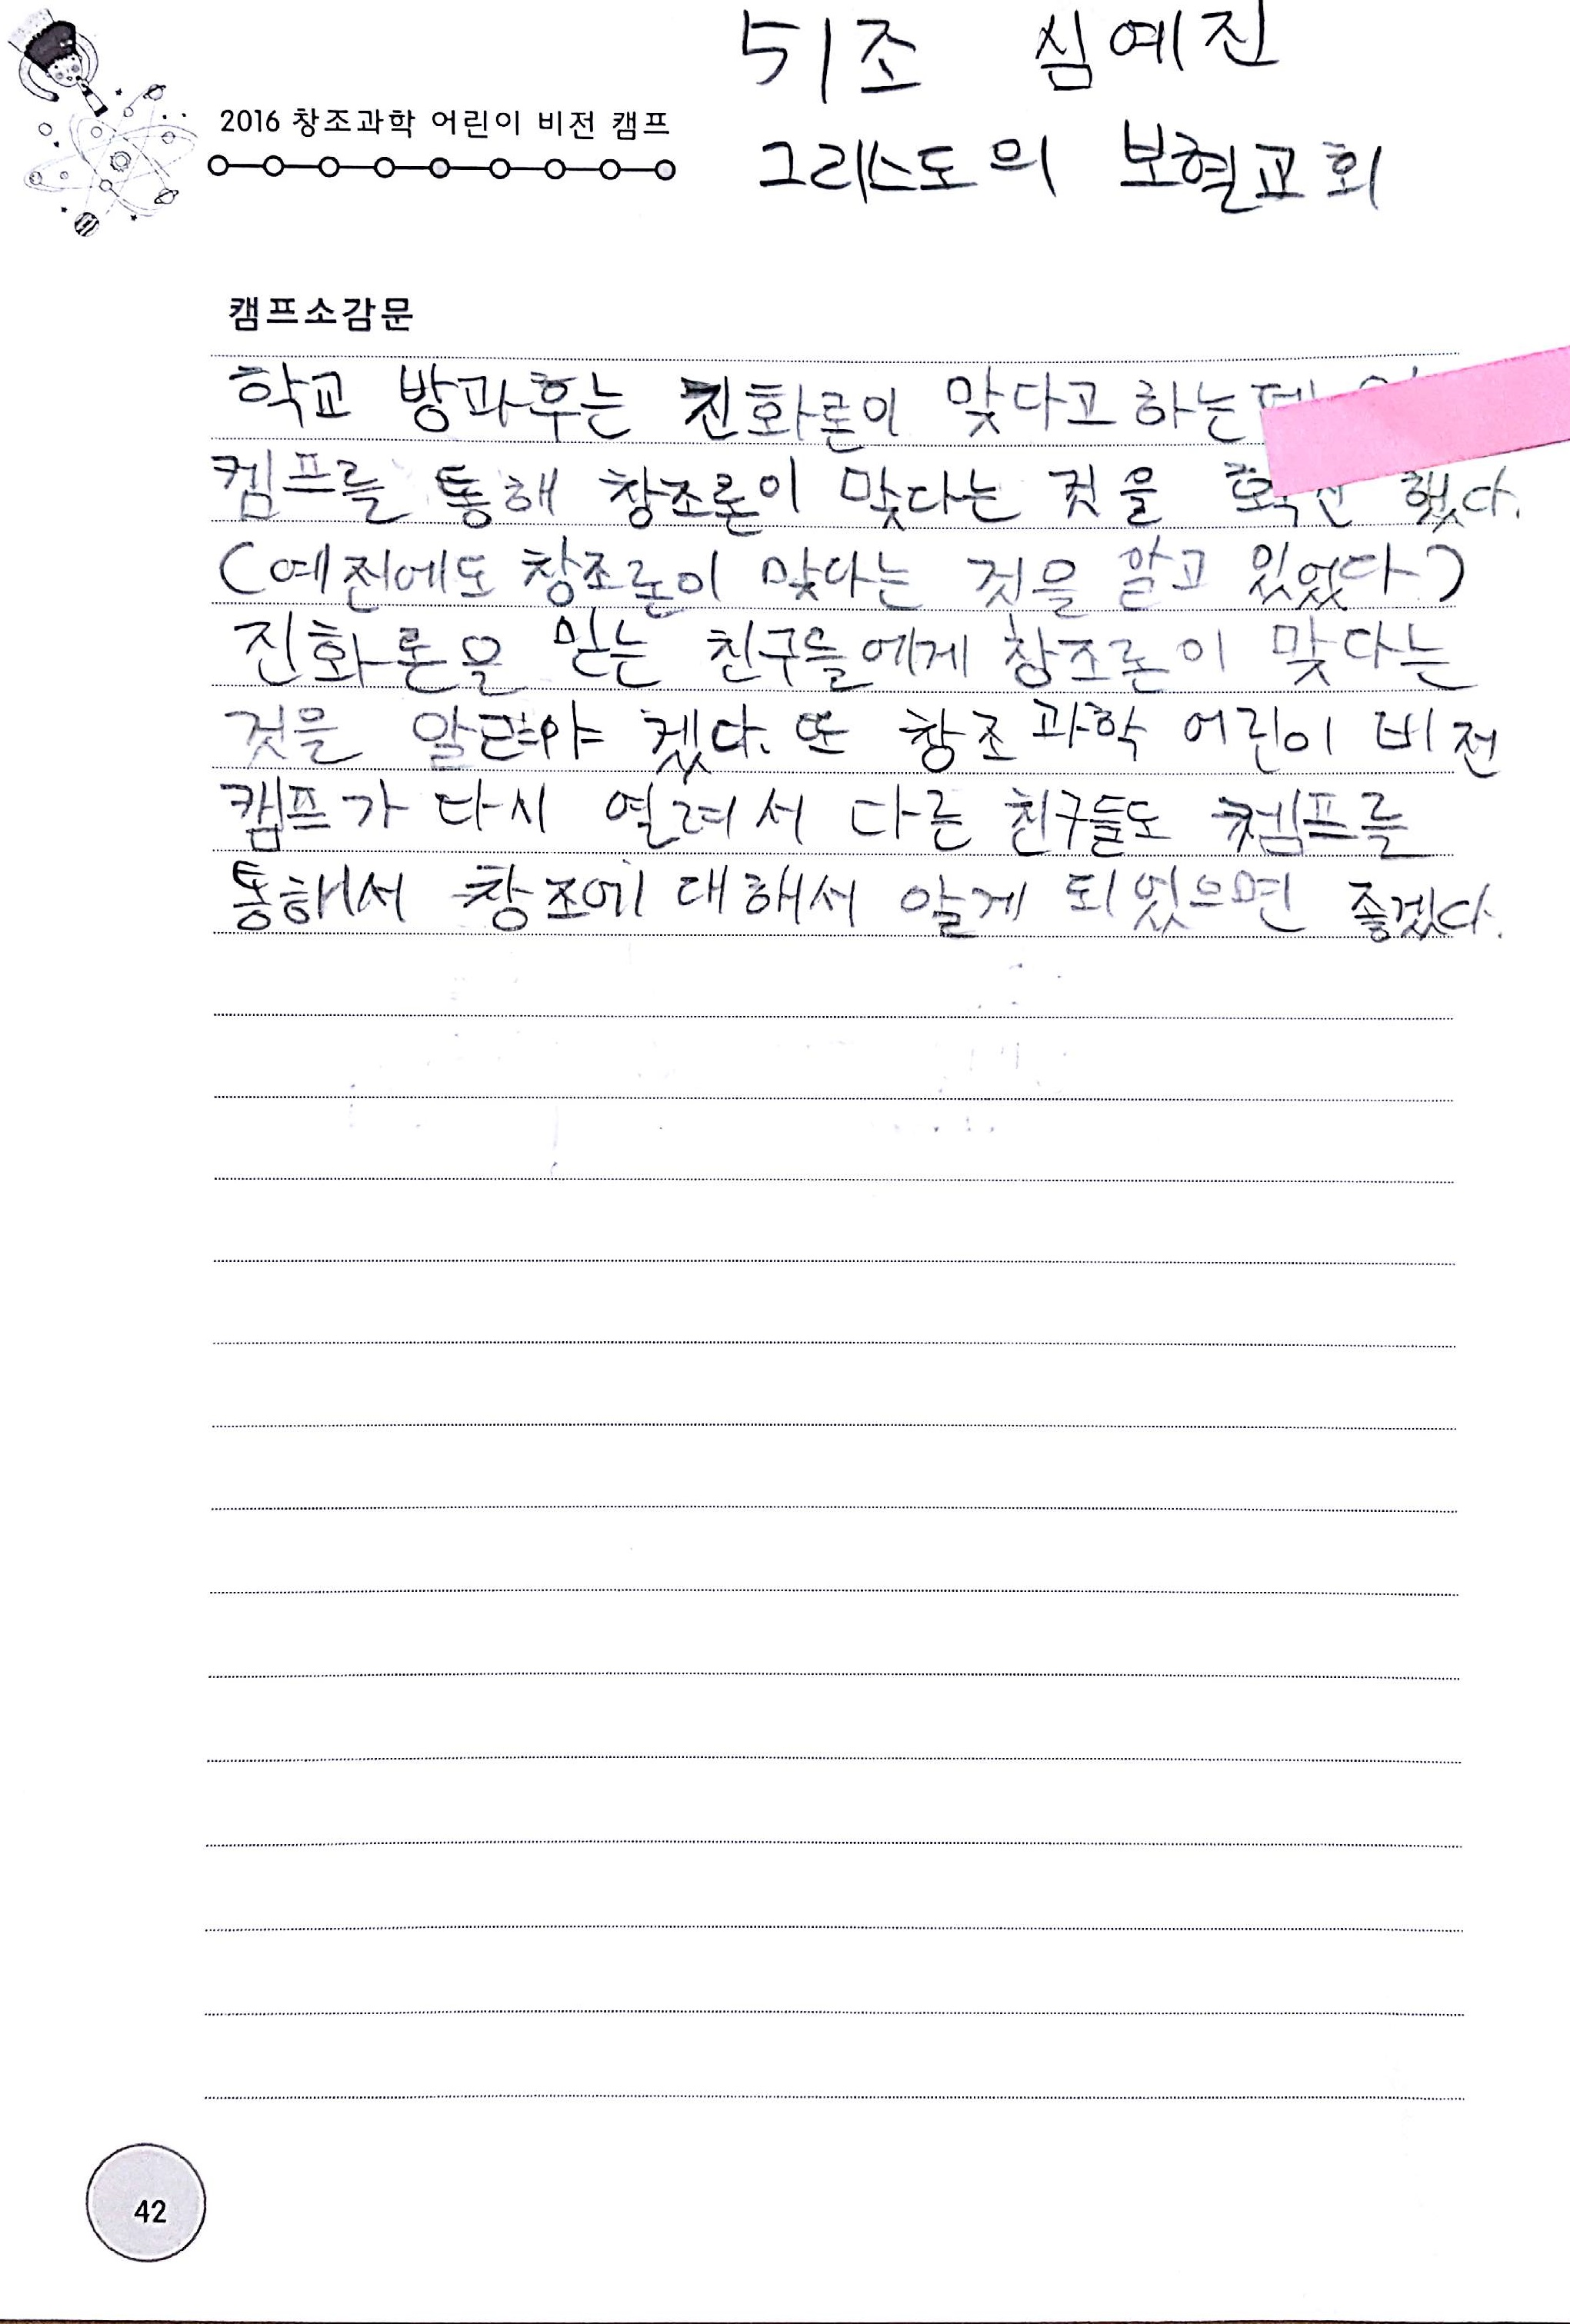 51조 심예진
2016 창조과학 어린이 비전 캠프
그리스도의 보혈교회
캠프소감문
학교 방과후는 진화론이 맞다고 하는데
켐프를 통해 창조론이 맞다는 것을 확신 했다.
(예전에도 창조론이 맞다는 것을 알고 있었다)
진화론을 믿는 친구들에게 창조론이 맞다는
것을 알려야 겠다. 또 창조과학 어린이 비전
캠프가 다시 열려서 다른 친구들도 켐프를
통해서 창조에 대해서 알게 되었으면 좋겠다.
42